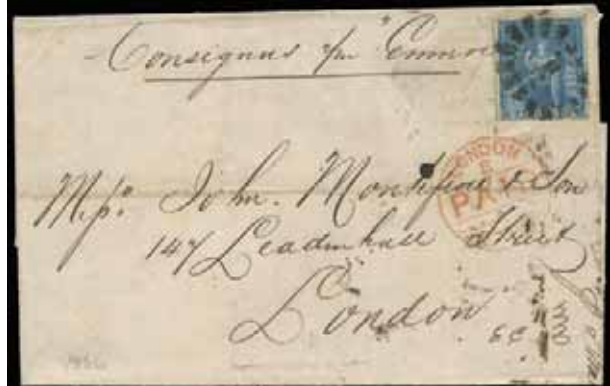 Consignees pr "Emma
LONDON
PAID
Messrs. John. Montefiore & Son
147 Leadenhall Street
London
EC
1866